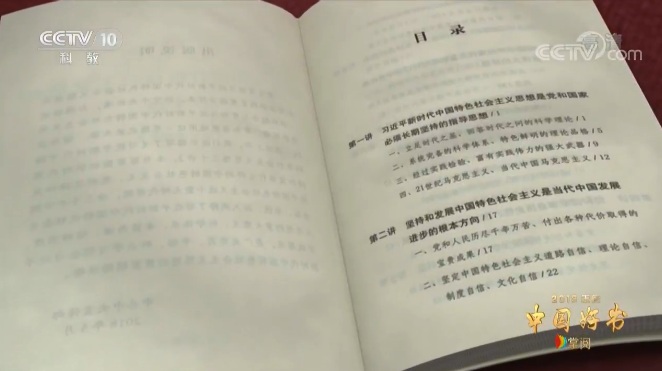 CCTV 10
科教
CCTV.com
目 录
第一讲 习近平新时代中国特色社会主义思想是党和国家
必须长期坚持的指导思想/1
一、立足时代之基、回答时代之问的科学理论/1
二、系统完备的科学体系、特色鲜明的理论品格/5
三、经过实践检验、富有实践伟力的强大武器/9
四、21世纪马克思主义、当代中国马克思主义/12
第二讲 坚持和发展中国特色社会主义是当代中国发展
进步的根本方向/17
一、党和人民历尽千辛万苦、付出各种代价取得的
宝贵成果/17
二、坚定中国特色社会主义道路自信、理论自信、
制度自信、文化自信/22
中国好书